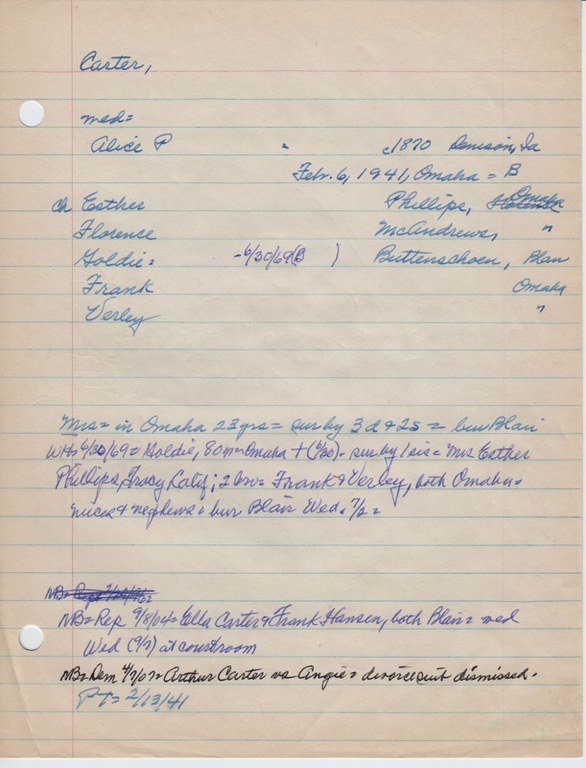 Carter,
med=
Alice P c1870 Denison, Ia
Feb. 6, 1941, Omaha = B
ch Esther Phillips, Omaha
Florence McAndrews, "
Goldie = -6/30/69(B ) Buttenschoen, Blair
Frank Omaha
Verley "
Mrs = in Omaha 23 yrs = sur by 3 d & 2 s = bur Blair
WHs 6/30/69 = Goldie, 80 m = Omaha + (6/30) - sur by 1 sis = Mrs Esther
Phillips, Tracy Calif; 2 bro = Frank & Verley, both Omaha =
nieces & nephews = bur Blair Wed. 7/2 =
NB = Rep
NB = Rep 9/8/04 = Ella Carter & Frank Hansen, both Blair = med
Wed (9/7) at courtroom
NB = Dem 4/7/07 = Arthur Carter vs Angie = divorce suit dismissed -
PT = 2/13/41